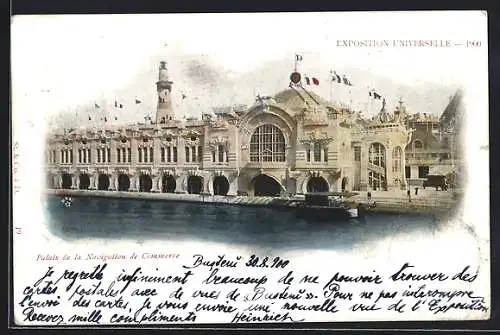 EXPOSITION UNIVERSELLE — 1900
Palais de la Navigation de Commerce
Busteni 30.8.900
Je regrette infiniment beaucoup de ne pouvoir trouver des
cartes postales avec de vues de «Busteni». Pour ne pas interrompre
l'envoi des cartes je vous envoie une nouvelle vue de l'Exposition
Recevez mille compliments Heinrich